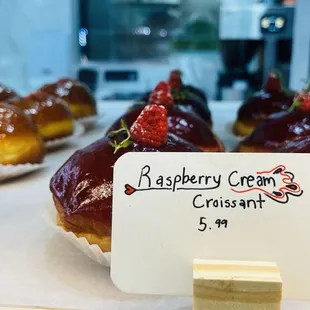 Raspberry Cream
Croissant
5.99